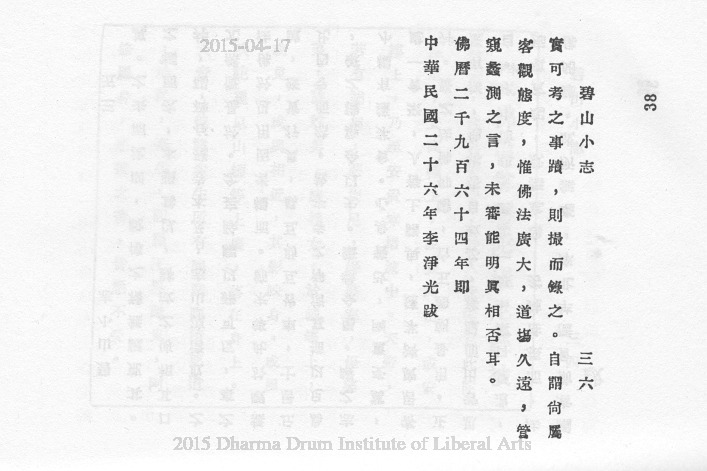 2015-04-17
38
碧山小志　三六
實可考之事蹟，則撮而錄之。自謂尙屬
客觀態度，惟佛法廣大，道塲久遠，管
窺蠡測之言，未審能明眞相否耳。
佛曆二千九百六十四年即
中華民國二十六年李淨光跋
2015 Dharma Drum Institute of Liberal Arts